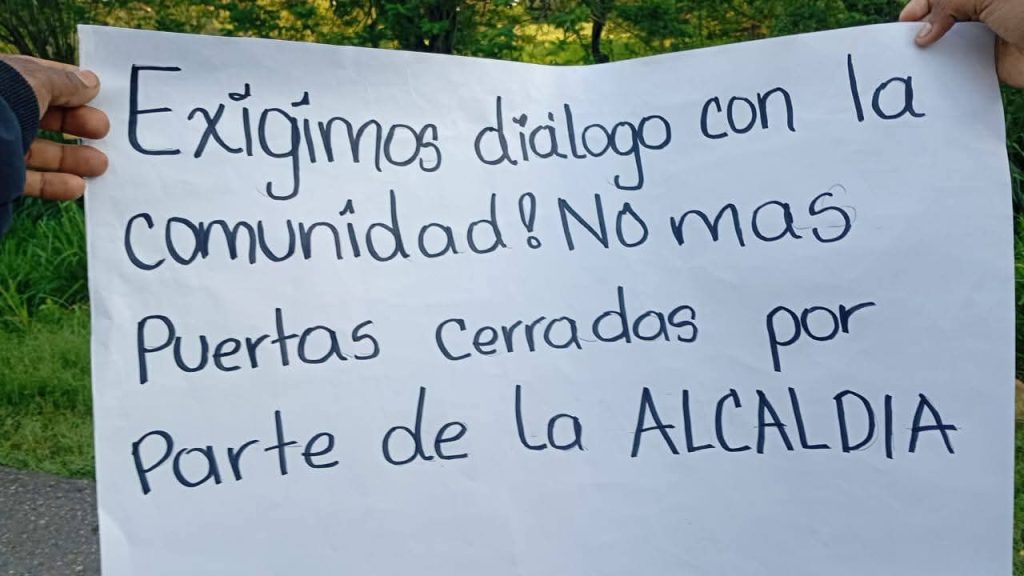 Exigimos diálogo con la
comunidad! No mas
Puertas cerradas por
parte de la ALCALDIA